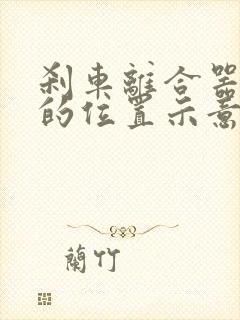 刹車離合器
的位置示意
蘭竹